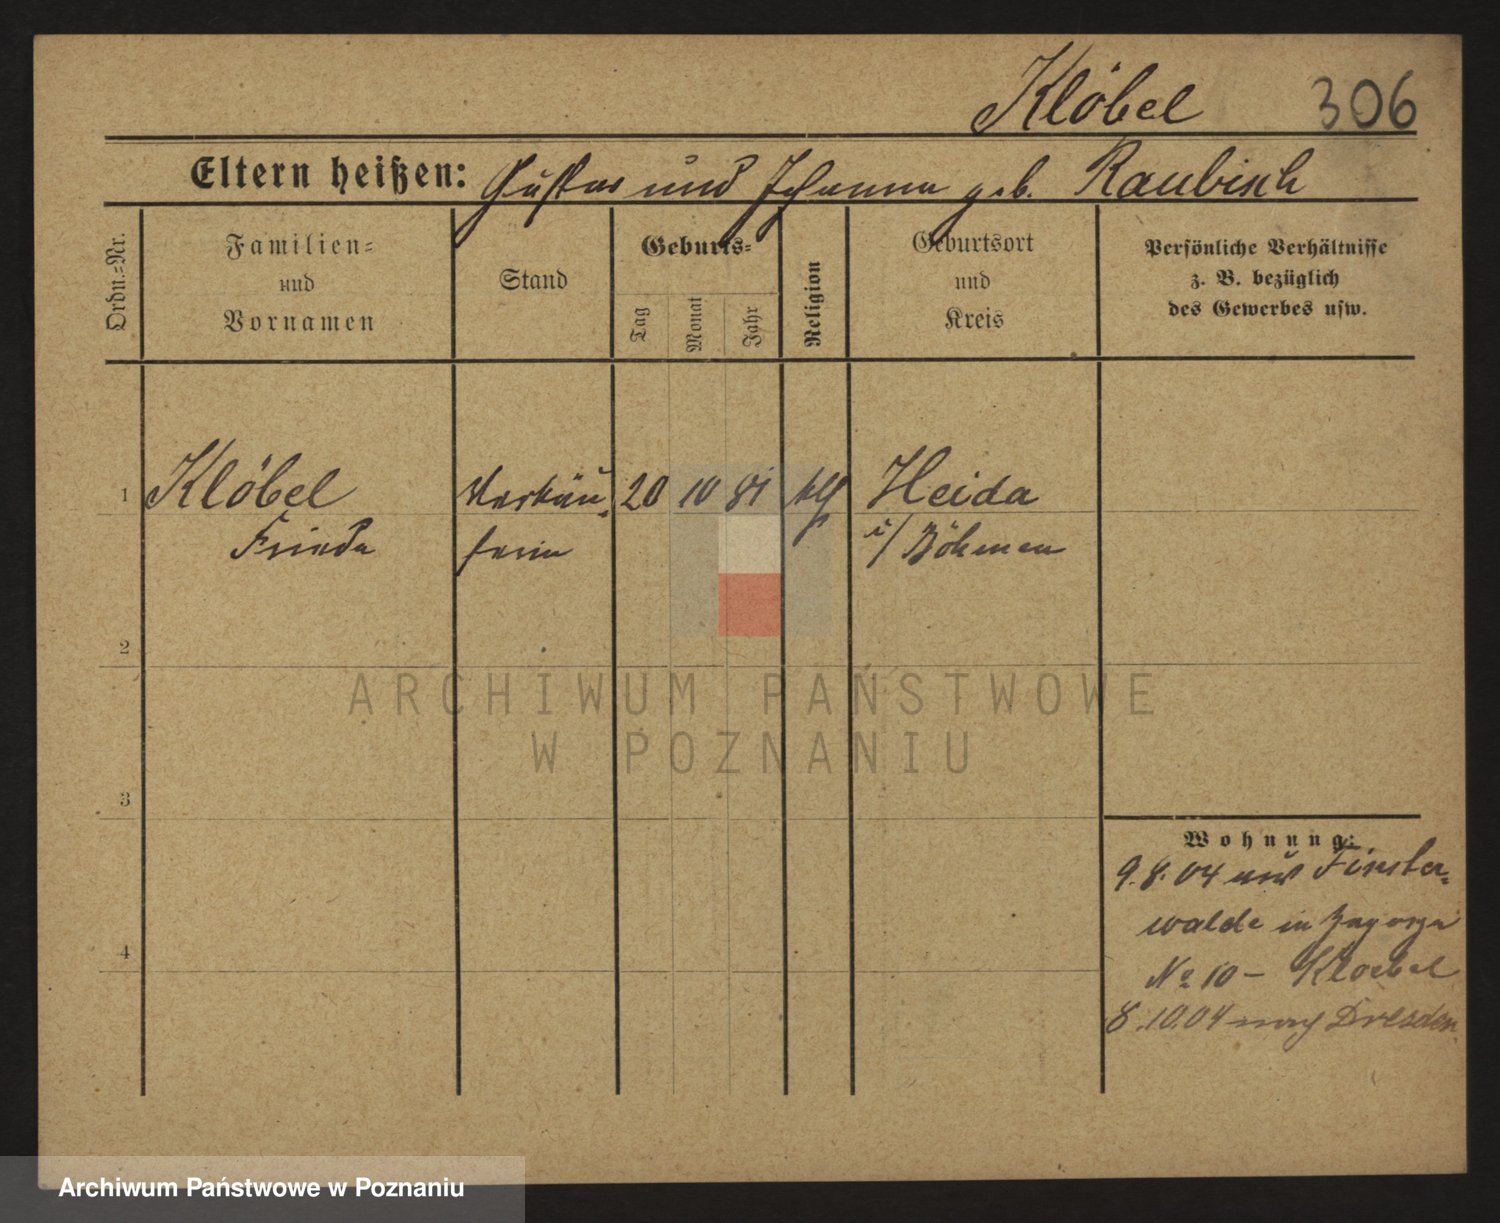 Klöbel 306
Eltern heißen: Gustav und Johanna geb. Raubisch
Ordn.=Nr.
Familien=
und
Vornamen
Stand
Geburts=
Tag
Monat
Jahr
Religion
Geburtsort
und
Kreis
Persönliche Verhältnisse
z. B. bezüglich
des Gewerbes usw.
1 Klöbel Verkäu= 20 10 81 Heida
Frieda ferin i/ Böhmen
2
ARCHIWUM PAŃSTWOWE
W POZNANIU
3
Wohnung:
9.8.04 aus Finster=
walde in Zagorze
No 10 – Kloebel
4
8.10.04 nach Dresden
Archiwum Państwowe w Poznaniu